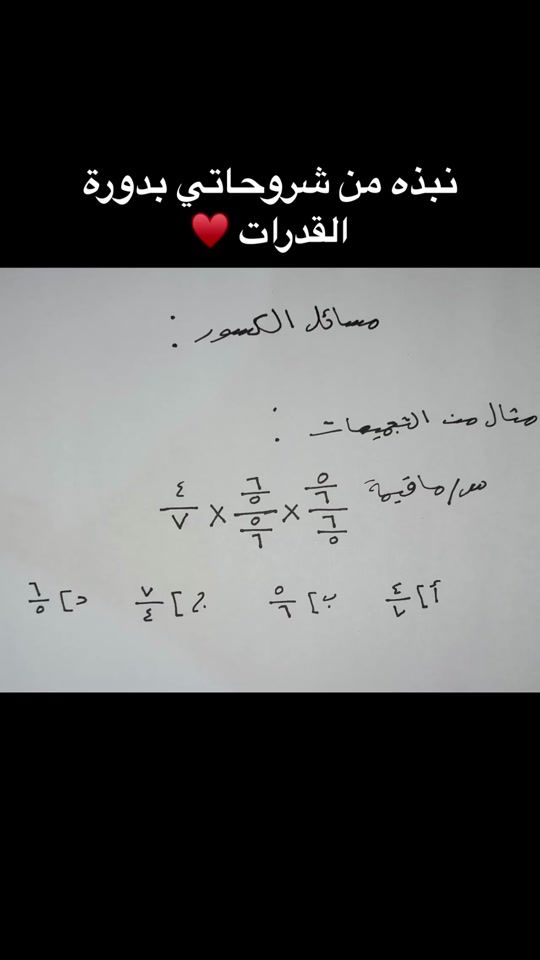 نبذه من شروحاتي بدورة
القدرات ♥️
مسائل الكسور :
مثال من التجميعات :
س/ ما قيمة (٥/٦)/(٦/٥) × (٦/٥)/(٥/٦) × ٤/٧
أ] ٤/٧ ب] ٥/٦ ج] ٧/٤ د] ٦/٥